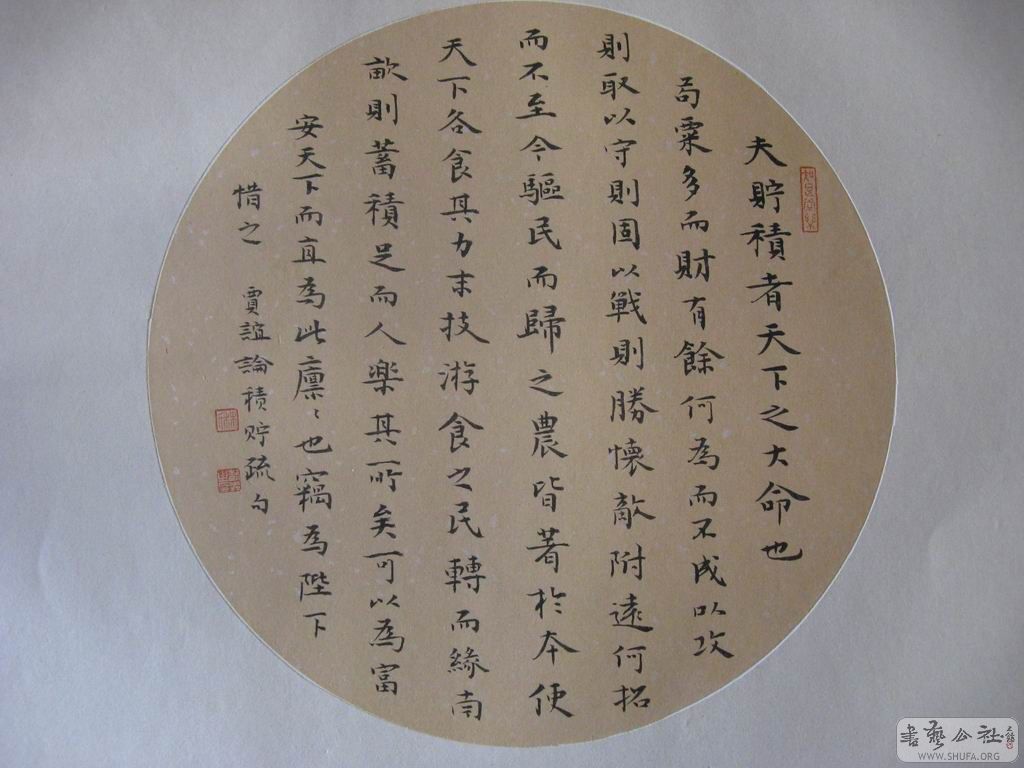 夫貯積者天下之大命也
苟粟多而財有餘何為而不成以攻
則取以守則固以戰則勝懷敵附遠何招
而不至今驅民而歸之農皆著於本使
天下各食其力末技游食之民轉而緣南
畝則蓄積足而人樂其所矣可以為富
安天下而直為此廩〻也竊為陛下
惜之 賈誼論積貯疏句
書藝公社
WWW.SHUFA.ORG